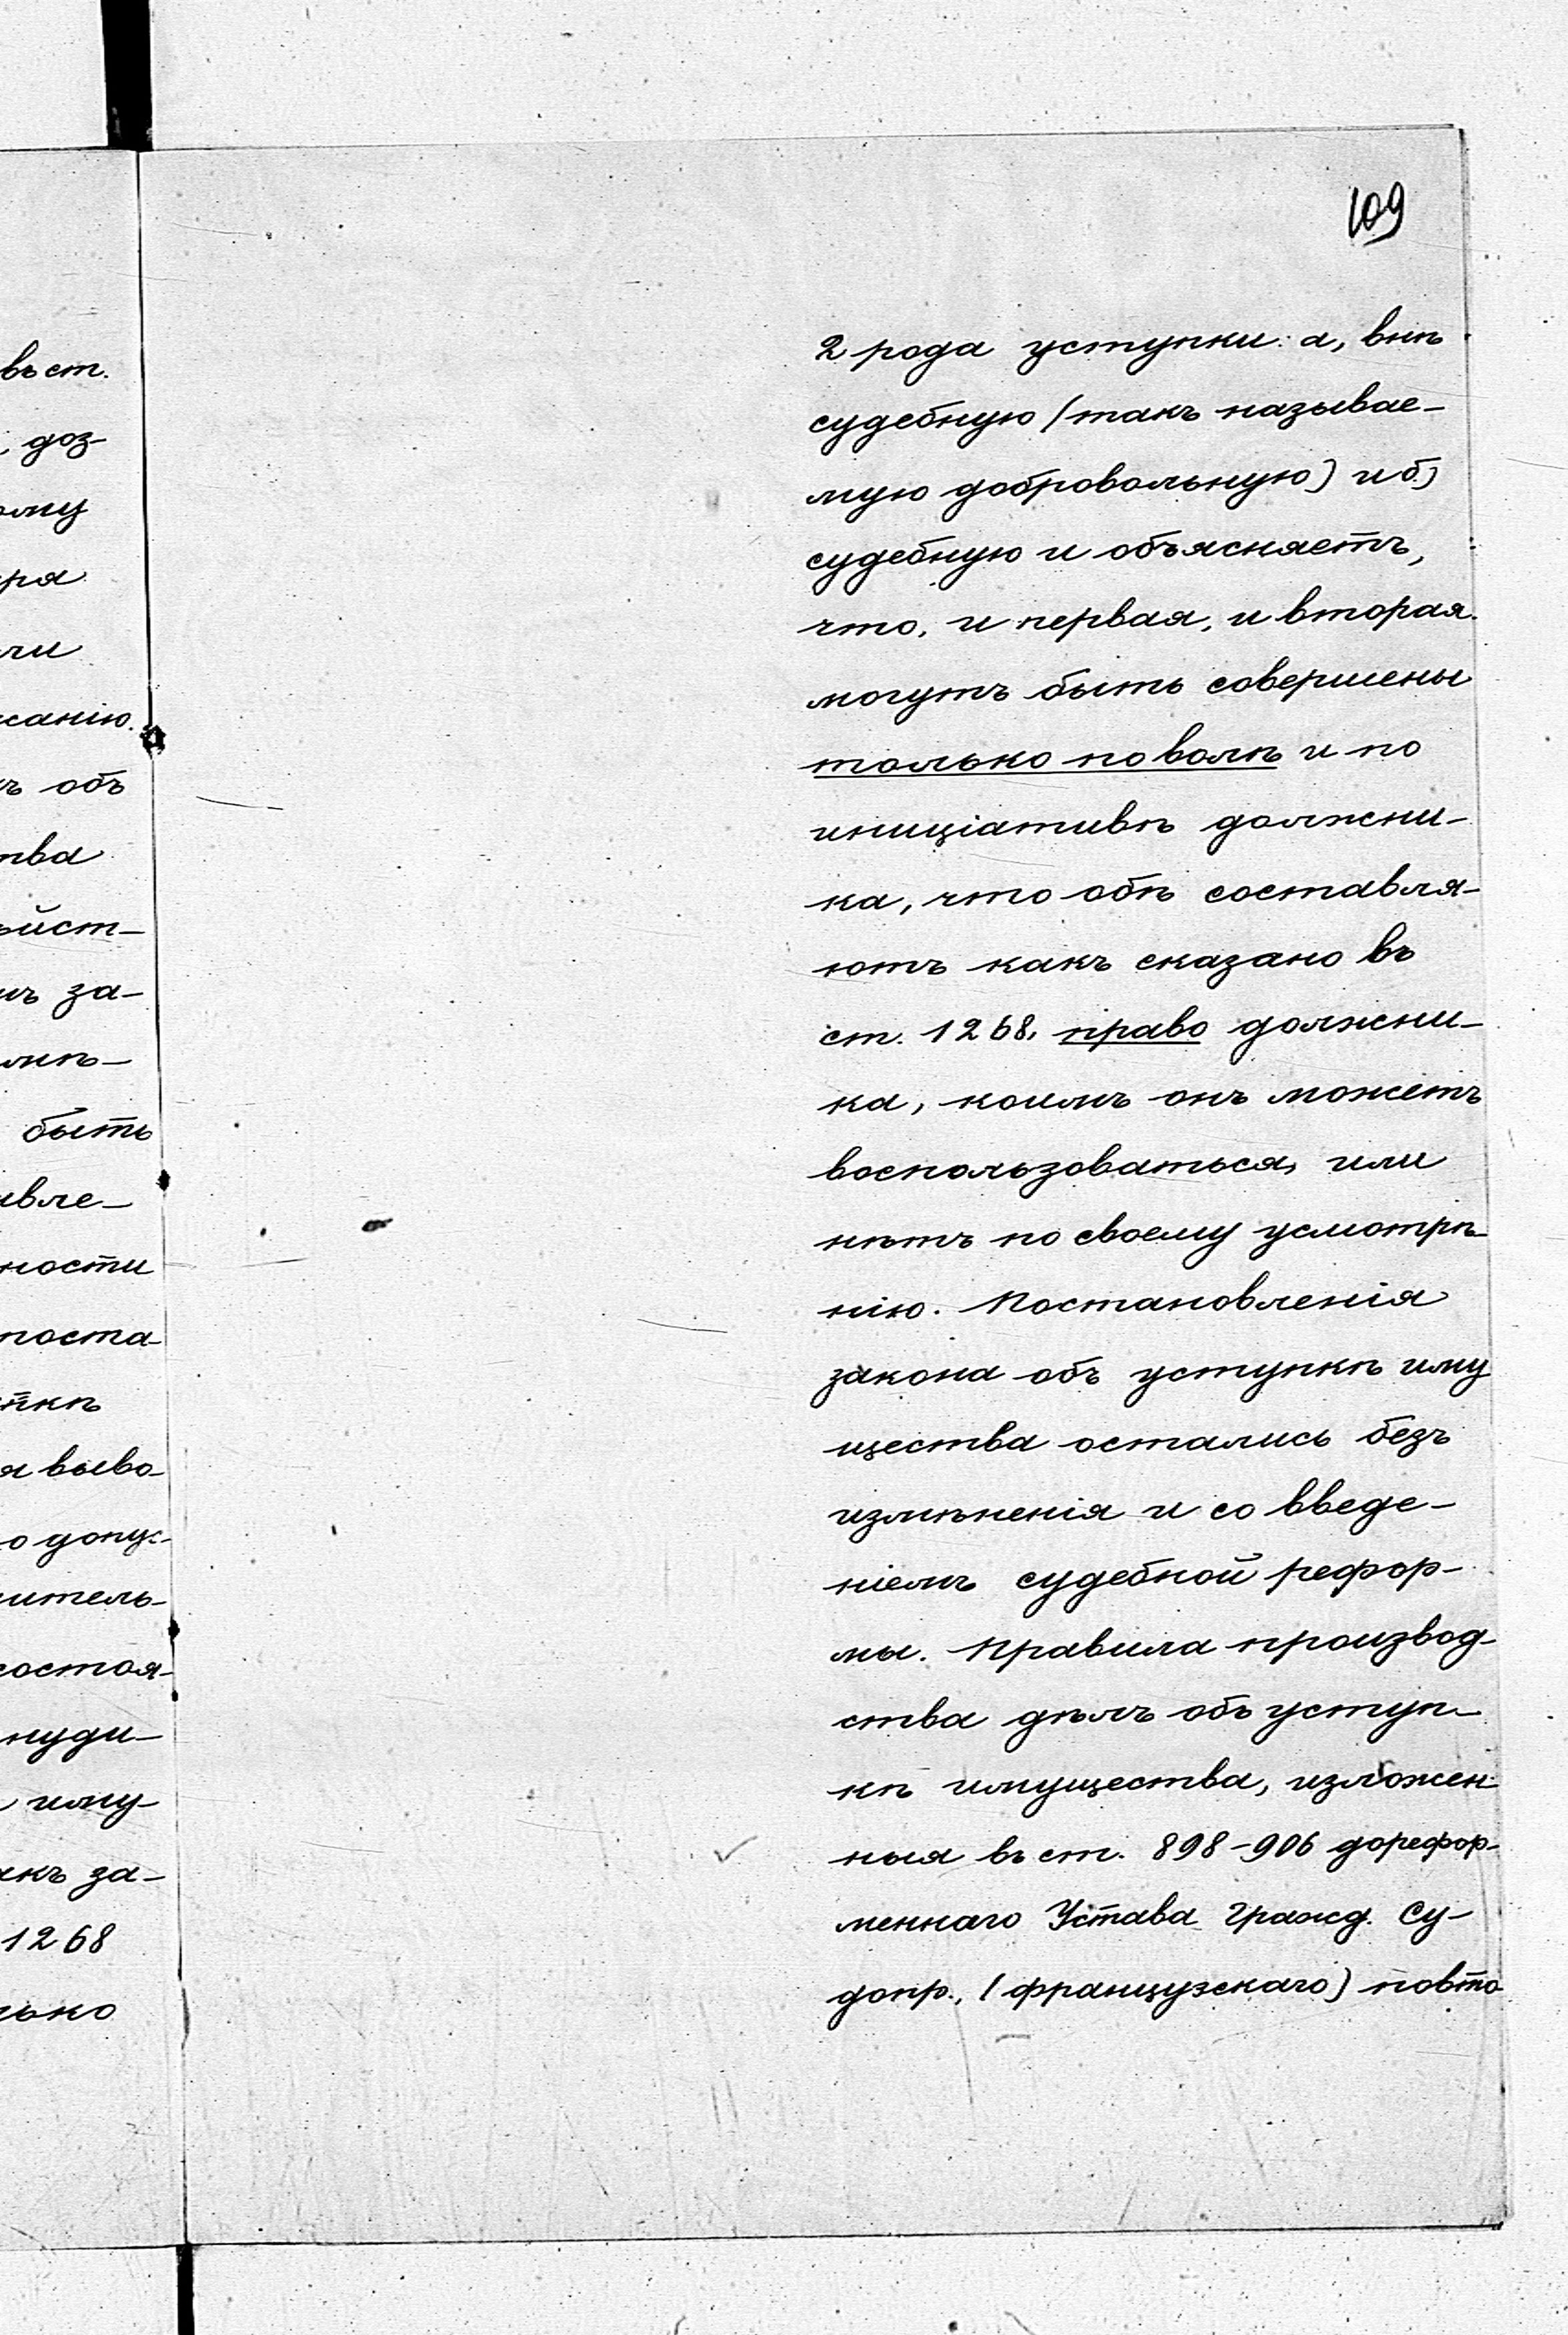 109
2 рода уступки: а, внѣ
судебную (такъ называе-
мую добровольную) и б)
судебную и объясняетъ,
что, и первая, и вторая
могутъ быть совершены
только по волѣ и по
иниціативѣ должни-
ка, что обѣ составля-
ютъ какъ сказано въ
ст. 1268, право должни-
ка, коимъ онъ можетъ
воспользоваться, или
нѣтъ по своему усмотрѣ-
нію. Постановленія
закона объ уступкѣ иму
щества остались безъ
измѣненія и со введе-
ніемъ судебной рефор-
мы. Правила производ-
ства дѣлъ объ уступ-
кѣ имущества, изложен
ныя въ ст. 898-906 дорефор-
меннаго Устава Гражд. Су-
допр., (французскаго) повто
въ ст.
доз-
ому
ря
ли
санію.
ъ объ
тва
ьйст-
мъ за-
лнѣ-
быть
авле-
ности
поста-
ткѣ
я выво-
о допус-
итель-
состоя-
нуди-
иму-
акъ за-
1268
лько